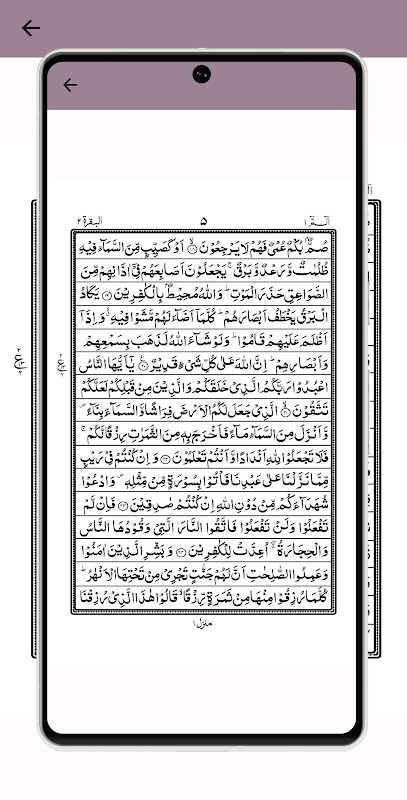 البقرة ٢
٥
الٓمّٓ ١
صُمٌّۢ بُكْمٌ عُمْىٌ فَهُمْ لَا يَرْجِعُوْنَ ۙ﴿۱۸﴾ اَوْ كَصَيِّبٍ مِّنَ السَّمَآءِ فِيْهِ
ظُلُمٰتٌ وَّرَعْدٌ وَّبَرْقٌ ۚ يَجْعَلُوْنَ اَصَابِعَهُمْ فِىْۤ اٰذَانِهِمْ مِّنَ
الصَّوَاعِقِ حَذَرَ الْمَوْتِ ؕ وَاللّٰهُ مُحِيْطٌۢ بِالْكٰفِرِيْنَ ﴿۱۹﴾ يَكَادُ
الْبَرْقُ يَخْطَفُ اَبْصَارَهُمْ ؕ كُلَّمَاۤ اَضَآءَ لَهُمْ مَّشَوْا فِيْهِ ۙ وَاِذَاۤ
اَظْلَمَ عَلَيْهِمْ قَامُوْا ؕ وَلَوْ شَآءَ اللّٰهُ لَذَهَبَ بِسَمْعِهِمْ
وَاَبْصَارِهِمْ ؕ اِنَّ اللّٰهَ عَلٰى كُلِّ شَىْءٍ قَدِيْرٌ ﴿۲۰﴾ يٰۤاَيُّهَا النَّاسُ
اعْبُدُوْا رَبَّكُمُ الَّذِىْ خَلَقَكُمْ وَالَّذِيْنَ مِنْ قَبْلِكُمْ لَعَلَّكُمْ
تَتَّقُوْنَ ۙ﴿۲۱﴾ الَّذِىْ جَعَلَ لَكُمُ الْاَرْضَ فِرَاشًا وَّالسَّمَآءَ بِنَآءً ۪
وَّاَنْزَلَ مِنَ السَّمَآءِ مَآءً فَاَخْرَجَ بِهٖ مِنَ الثَّمَرٰتِ رِزْقًا لَّكُمْ ۚ
فَلَا تَجْعَلُوْا لِلّٰهِ اَنْدَادًا وَّاَنْتُمْ تَعْلَمُوْنَ ﴿۲۲﴾ وَاِنْ كُنْتُمْ فِىْ رَيْبٍ
مِّمَّا نَزَّلْنَا عَلٰى عَبْدِنَا فَاْتُوْا بِسُوْرَةٍ مِّنْ مِّثْلِهٖ ۪ وَادْعُوْا
شُهَدَآءَكُمْ مِّنْ دُوْنِ اللّٰهِ اِنْ كُنْتُمْ صٰدِقِيْنَ ﴿۲۳﴾ فَاِنْ لَّمْ
تَفْعَلُوْا وَلَنْ تَفْعَلُوْا فَاتَّقُوا النَّارَ الَّتِىْ وَقُوْدُهَا النَّاسُ
وَالْحِجَارَةُ ۚۖ اُعِدَّتْ لِلْكٰفِرِيْنَ ﴿۲۴﴾ وَبَشِّرِ الَّذِيْنَ اٰمَنُوْا
وَعَمِلُوا الصّٰلِحٰتِ اَنَّ لَهُمْ جَنّٰتٍ تَجْرِىْ مِنْ تَحْتِهَا الْاَنْهٰرُ ؕ
كُلَّمَا رُزِقُوْا مِنْهَا مِنْ ثَمَرَةٍ رِّزْقًا ۙ قَالُوْا هٰذَا الَّذِىْ رُزِقْنَا
منزل ١